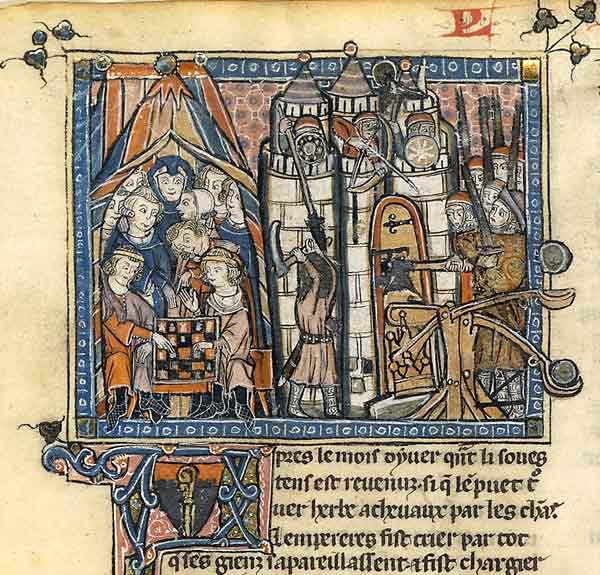 L
Apres le mois dyuer qñt li soues
tens est reuenuz. si q̄ lē puet t̄
uer herbe a cheuaux par les chãs
Lempereres fist crier par tot
q̄ ses gienz sapareillassent ⁊ fist chargier